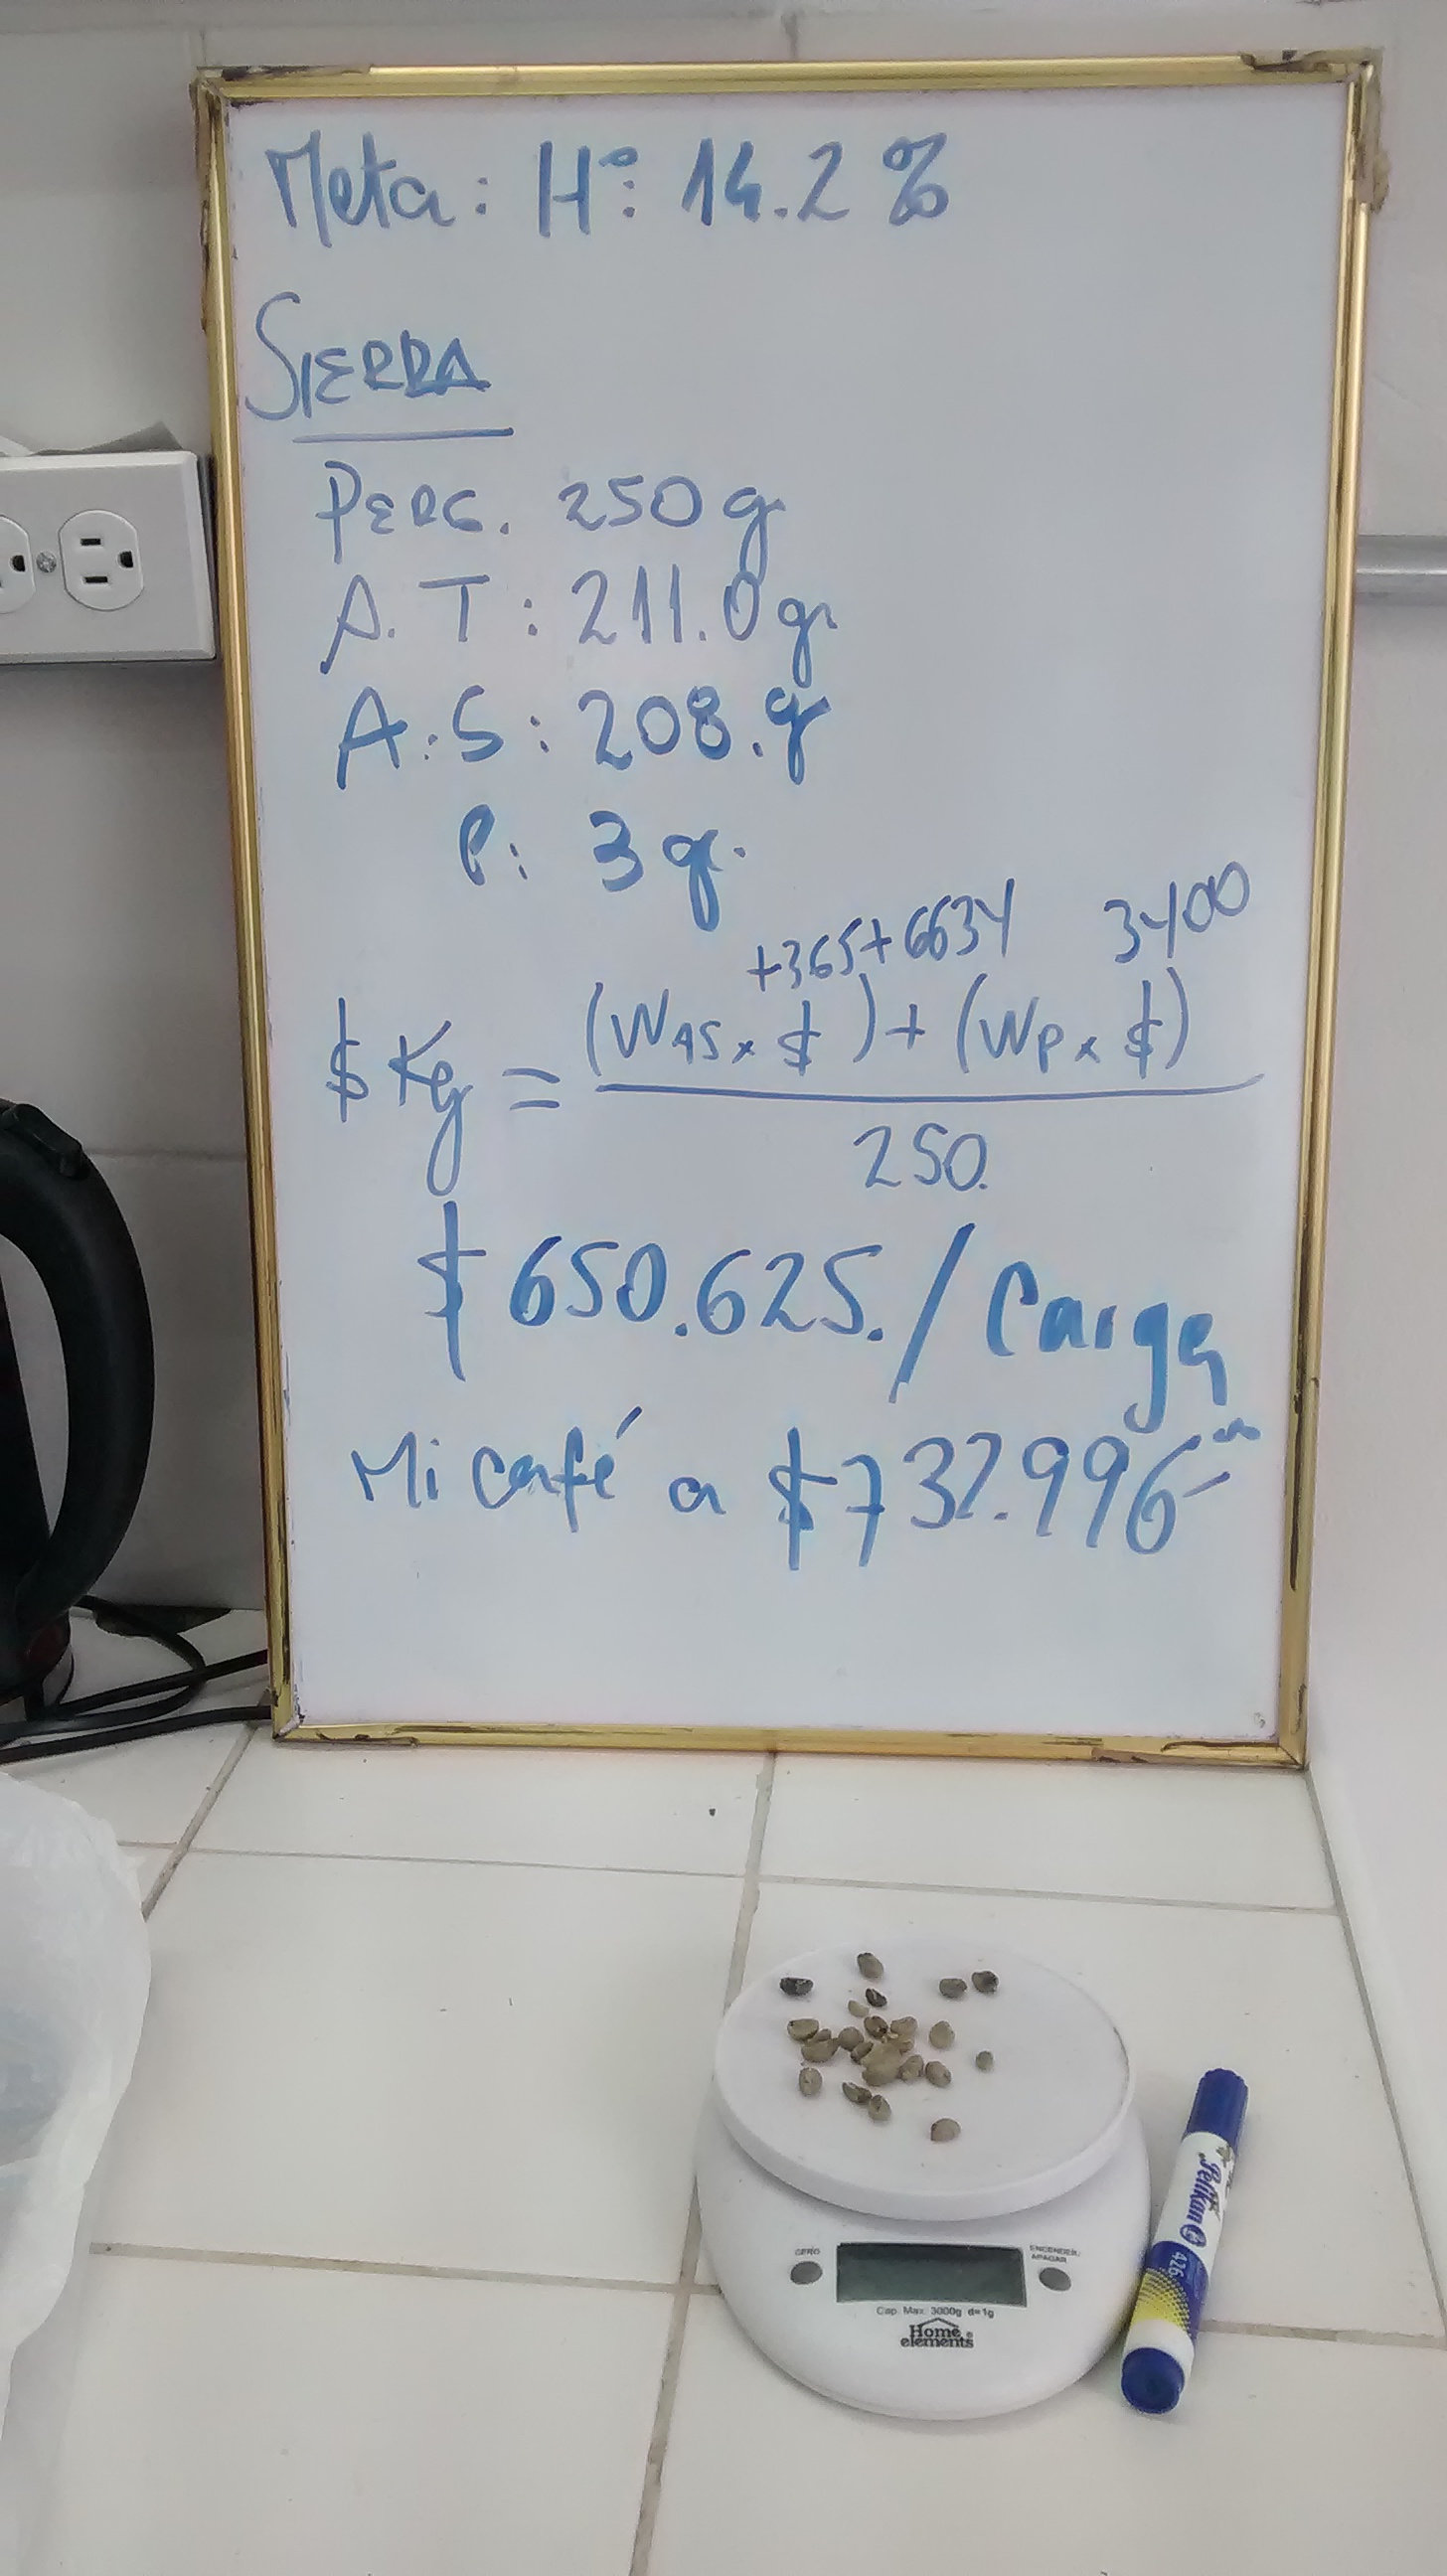 Meta: H°: 14.2%
SIERRA
PERG. 250 g
A.T: 211.0 gr
A.S: 208.g
P: 3 gr.
+365+6634 3400
$ Kg = (WAS x $) + (WP x $)
250.
$ 650.625./Carga
Mi café a $732.996
CERO
ENCENDER/
APAGAR
Cap. Max: 3000g d=1g
Home
elements
Pelikan
426